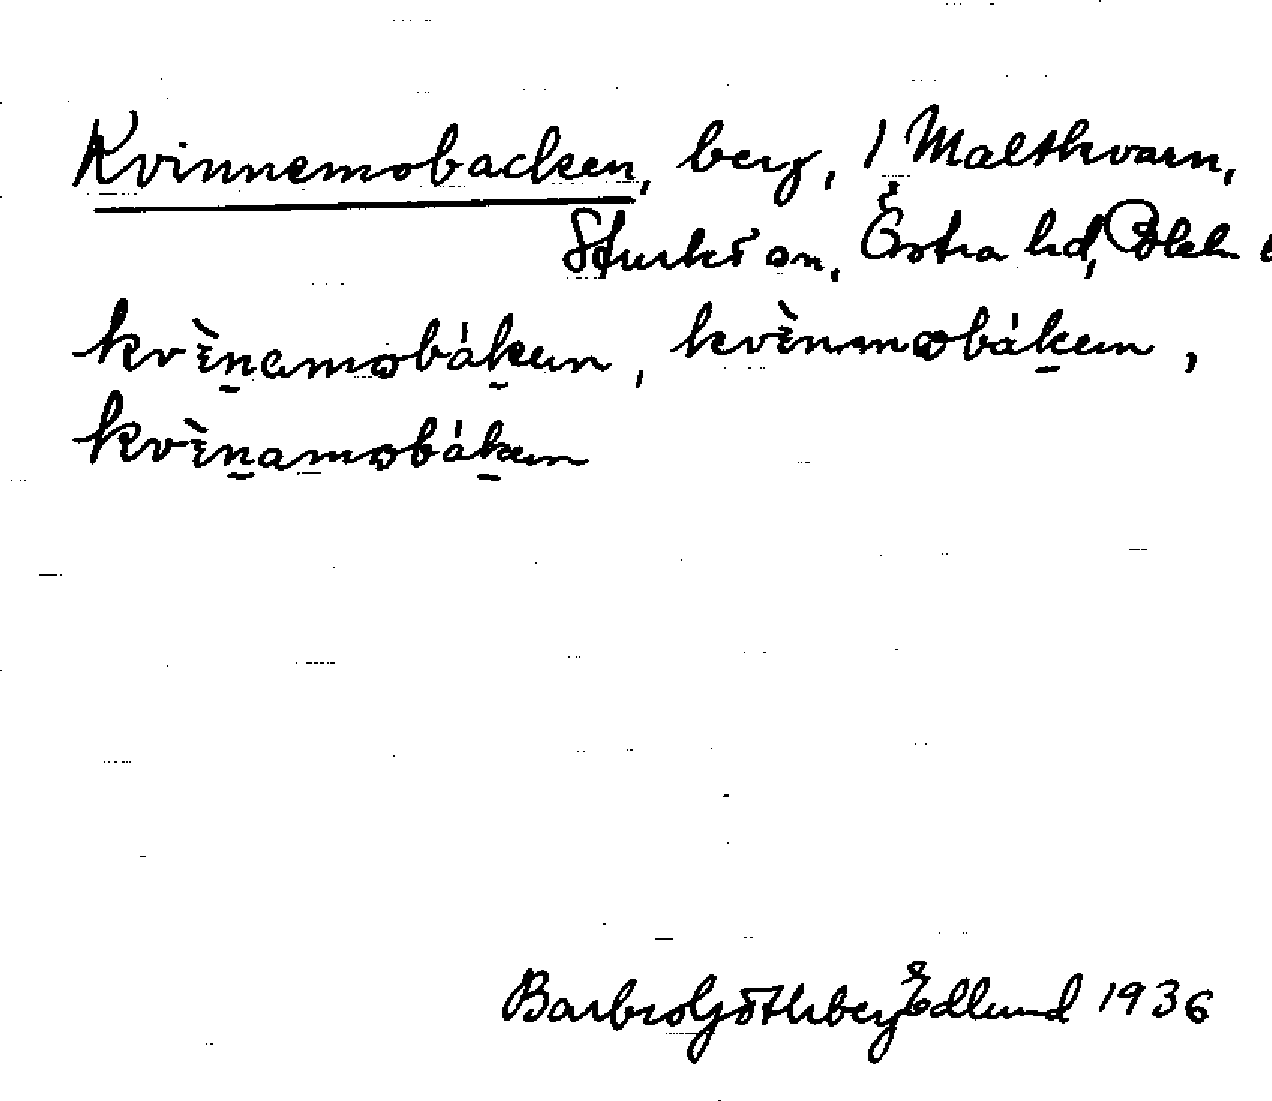 Kvinnemobacken, berg, 1 Maltkvarn,
Sturkö sn, Östra hd, Blek
kvìnamobákan, kvìnmobákan,
kvìnamobákan
Barbro Göthberg Edlund 1936